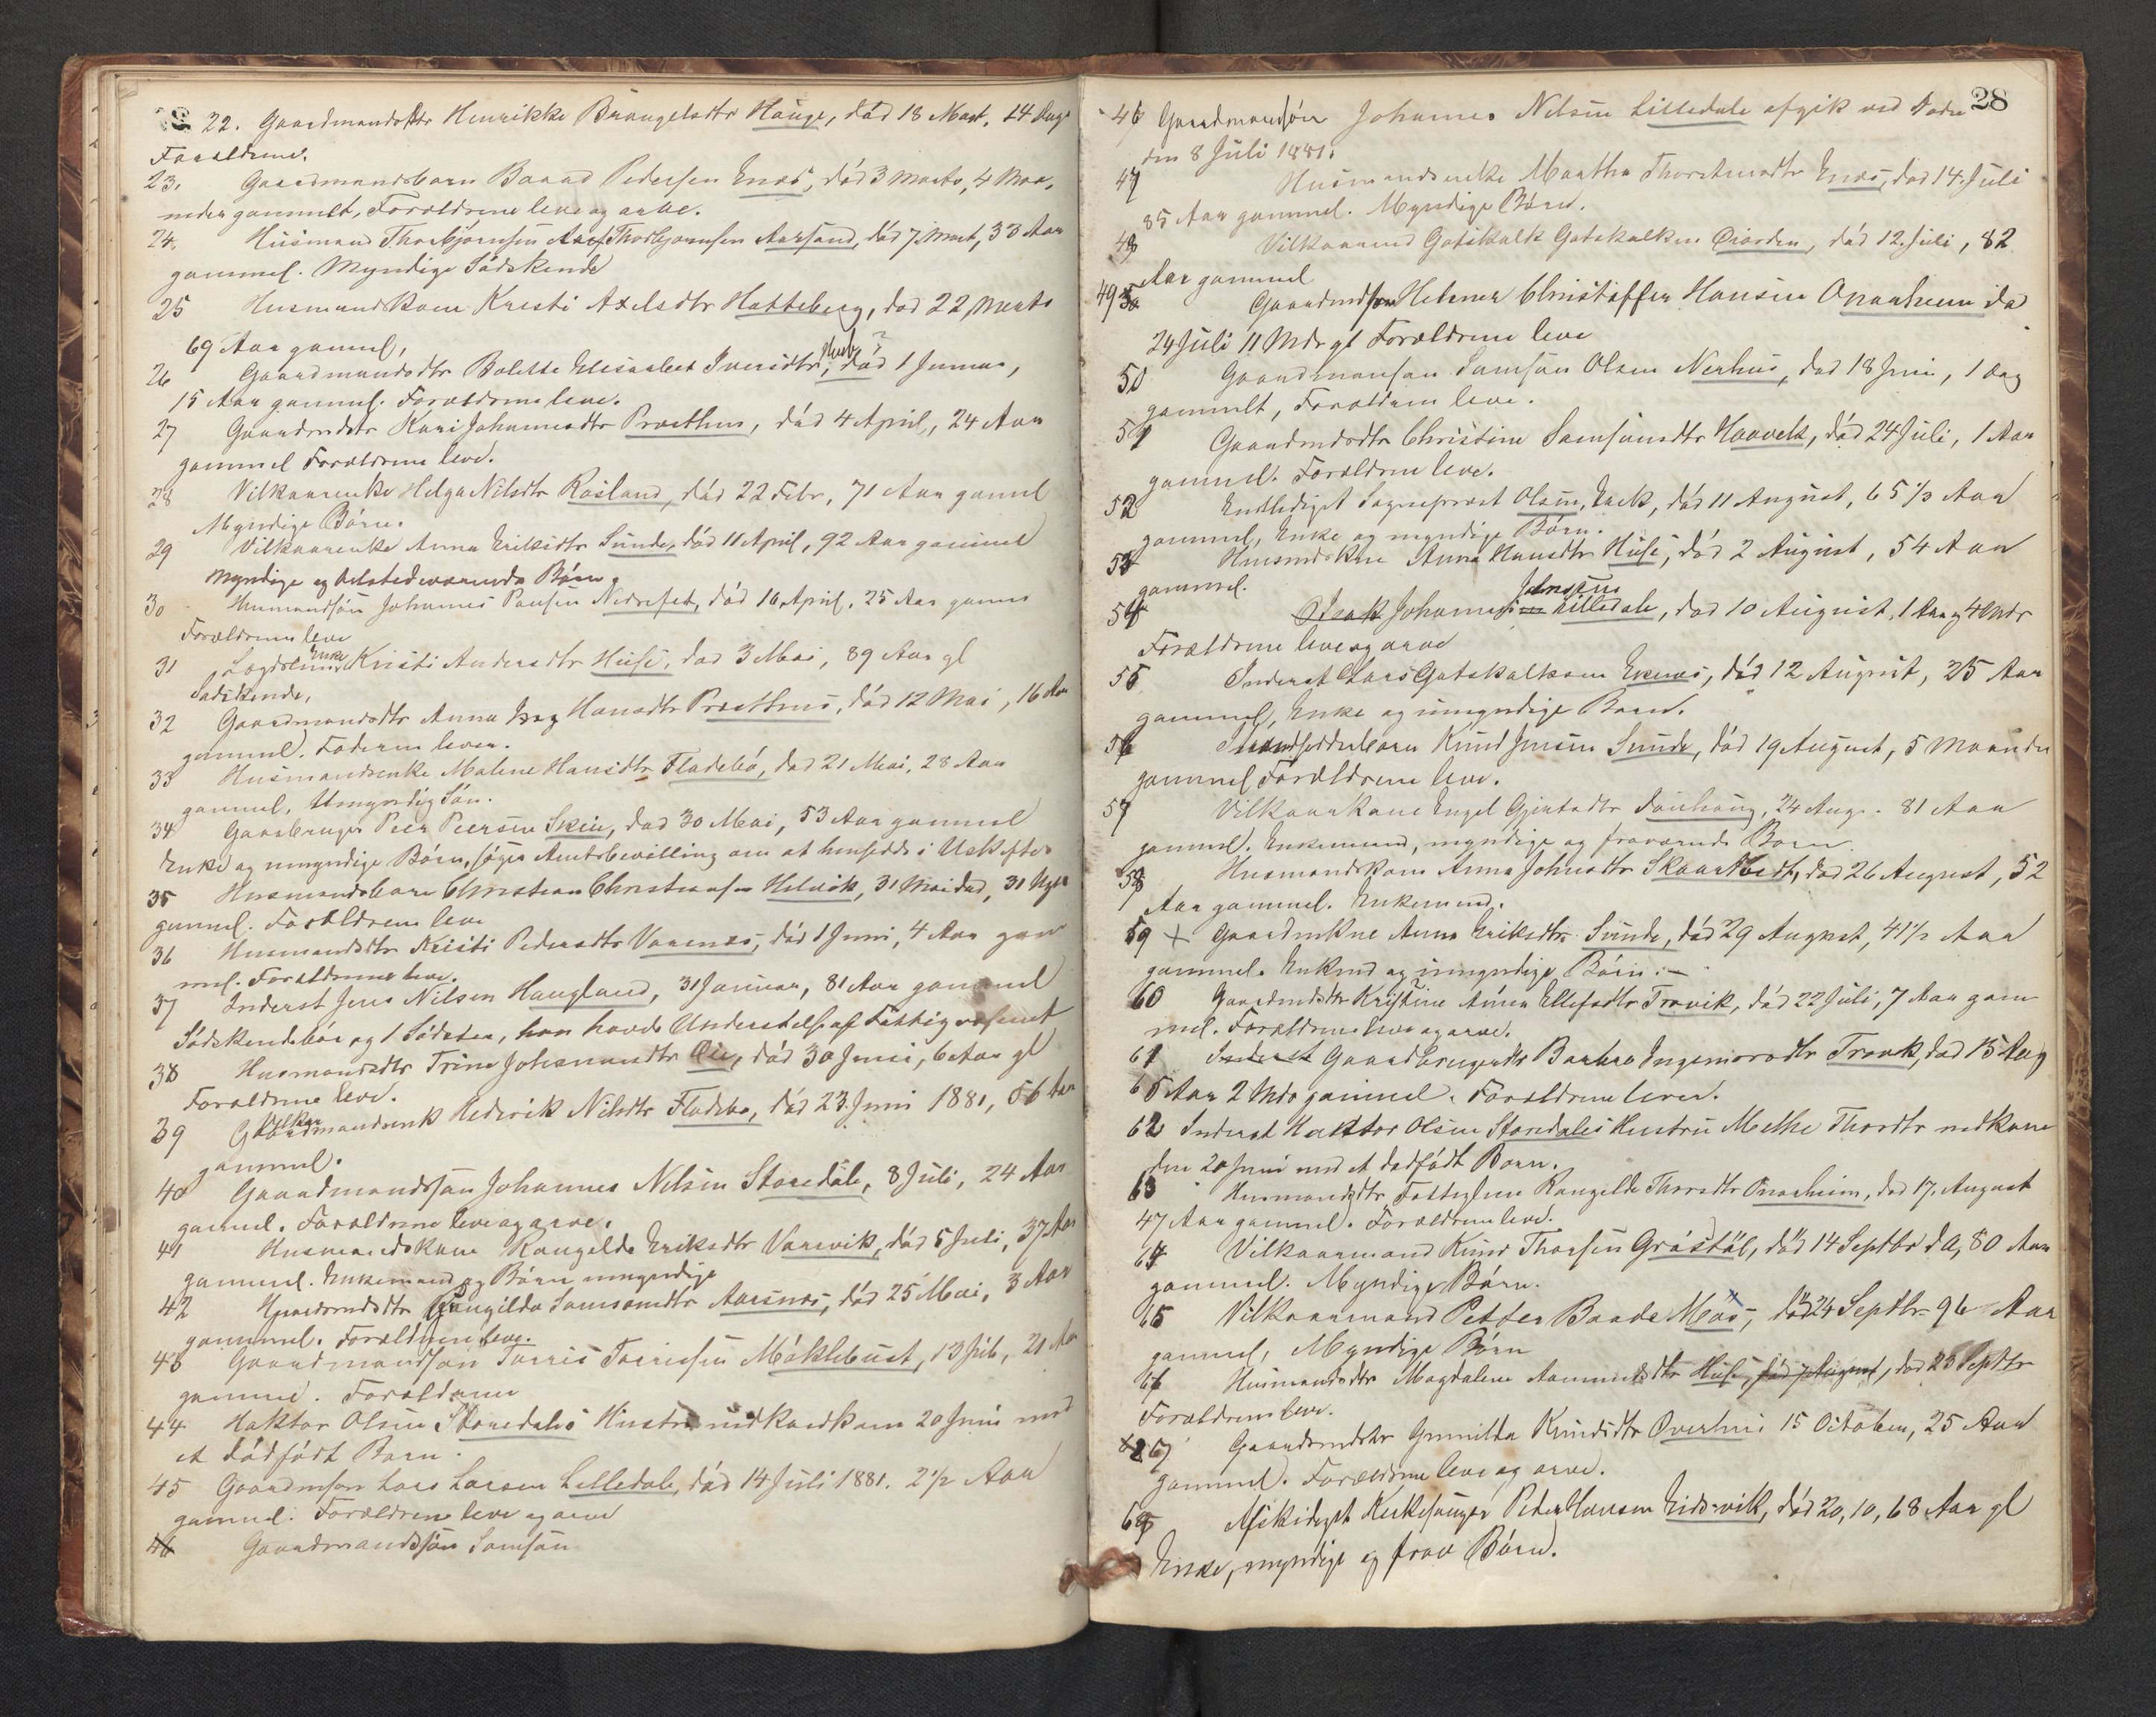 22. Gaardmandsdtr Henrikke Brangelsdtr Hauge, död 18 Mart, 14 Dage
Forældrene.
23. Gaardmandsbarn Baard Pedersen Enæs, död 3 Marts, 4 Maa,
neder gammelt, Forældrene leve og arve.
24. Husmand Thorbjørnsen Thorbjørnsen Aarsand, död 7 Mart, 33 Aar
gammel. Myndige Södskende
25 Husmandskone Kristi Axelsdtr Hatteberg, död 22 Marts
69 Aar gammel,
26 Gaardmandsdtr Bolette Elisabet Iversdtr, död 1 Januar,
15 Aar gammel. Forældrene leve.
27 Gaardmdsdtr Kari Johannesdtr Præsthus, död 4 April, 24 Aar
gammel Forældrene leve.
28 Vilkaarenke Helga Nilsdtr Røsland, död 22 Febr, 71 Aar gaml
Myndige Börn.
29 Vilkaarenke Anna Eriksdtr Sunde, död 11 April, 92 Aar gammel
Myndige og tilstedeværende Börn.
30 Husmandsön Johannes Paulsen Nedrefet, död 16 April, 25 Aar gammel
Forældrene leve
31 Lægdslem Enke Kristi Andersdtr Huse, död 3 Mai, 89 Aar gl
Södskende,
32 Gaardmandsdtr Anna Hansdtr Præsthus, död 12 Mai, 16 Aar
gammel. Faderen lever.
33 Husmandsenke Malene Hansdtr Fladebö, död 21 Mai, 28 Aar
gammel, Umyndig Sön.
34 Gaardbruger Peer Peersen Skeie, död 30 Mai, 53 Aar gammel
Enke og umyndige Börn, söger Amtsbevilling om at hensidde i Uskiftet
35 Husmandsbarn Christian Christiansen Helvik, 31 Mai död, 31 Uger
gammel. Forældrene leve
36 Husmandsdtr Kristi Pedersdtr Varenæs, död 1 Juni, 4 Aar gam
mel. Forældrene leve.
37 Inderst Jens Nilsen Haugland, 31 Januar, 81 Aar gammel
Södskendebörn og 1 Södster, han havde Understöttelse af Fattigvæsenet
38 Husmandsdtr Trine Johannesdtr Øie, död 30 Juni, 6 Aar gl
Forældrene leve.
39 Vilkaar Gaardmandsenk Hedevik Nilsdtr Fladebø, död 23 Juni 1881, 56 Aar
gammel.
40 Gaardmandssön Johannes Nilsen Storedale, 8 Juli, 24 Aar
gammel. Forældrene leve og arve.
41 Husmandskone Rangelda Eriksdtr Varvik, död 5 Juli, 37 Aar
gammel. Enkemand og Börn umyndige
42 Gaardmdsdtr Gungilda Samsonsdtr Aarsnæs, död 25 Mai, 3 Aar
gammel. Forældrene leve.
43 Gaardmandssön Torris Torrissen Möklebust, 13 Juli, 21 Aar
gammel. Forældrene
44 Haktor Olsen Storedales Hustru nedkom 20 Juni med
et dödfödt Barn.
45 Gaardmsön Lars Larsen Lilledale, död 14 Juli 1881. 2 1/2 Aar
gammel. Forældrene leve og arve
46 Gaardmandssön Samson
28
46 Gaardmandsön Johannes Nelsen Lilledale afgik ved Døden
den 8 Juli 1881.
47 Husmandsenke Martha Thorstensdtr Enæs, död 14. Juli
85 Aar gammel. Myndige Börn.
48 Vilkaarmd Gotskalk Gotskalksen, död 12. Juli, 82
Aar gammel
49 Gaardmdsön Helmer Christoffer Hansen Onarheim död
24 Juli 11 Mdr gl Forældrene leve
50 Gaardmansön Samson Olsen Nerhus, död 18 Juni, 1 Dag
gammelt, Forældrene leve.
51 Gaardmdsdtr Christine Samsonsdtr Haavek, död 24 Juli, 1 Aar
gammel. Forældrene leve.
52 Entlediget Sognepræst Olsen, död 11 August, 65 1/3 Aar
gammel, Enke og myndige Börn.
53 Husmdskone Anna Hansdtr Huse, död 2 August, 54 Aar
gammel.
54 Johannes Lilledale, död 10 August, 1 Aar og 4 Mdr
Forældrene leve og arve
55 Inderst Lars Gotskalksen Exenæs, död 12 August, 35 Aar
gammel, Enke og umyndige Barn.
56 Strandsidderbarn Knud Jensen Sunde, död 19 August, 5 Maaneder
gammel Forældrene leve.
57 Vilkaarkone Engel Gjertsdtr, 24 Aug. 81 Aar
gammel. Enkemand, myndige og fraværende Börn.
58 Husmandskone Anna Johnsdtr, död 26 August, 52
Aar gammel. Enkemand.
59 + Gaardmkne Anna Eriksdtr Sunde, död 29 August, 41 1/2 Aar
gammel. Enkemd og umyndige Börn. –
60 Gaardmdsdtr Kristine Anna Ellefsdtr Trovik, död 22 Juli, 7 Aar gam
mel. Forældrene leve og arve.
61 Inderst Gaardbrugersdtr Barbro Ingemorsdtr Trovik, död 15 Aug
65 Aar 2 Mdr gammel. Forældrene leve.
62 Inderst Haktor Olsen Storedales Hustru Methe Thordtr nedkom
den 20 Juni med et dødfödt Barn.
63 Husmandsdtr, Fattiglem Rangelda Thorsdtr Onarheim, död 17. August
47 Aar gammel. Forældrene leve.
64 Vilkaarmand Knud Thorsen Gråstöl, död 14 Septbr d A, 80 Aar
gammel. Myndige Börn.
65 Vilkaarmand Petter Baade Møs, död 24 Septbr 96 Aar
gammel, Myndige Börn
66 Husmandsdtr Magdalene Aamundsdtr Huse, död 7 August, död 23 Septbr
Forældrene leve.
67 Gaardmdsdtr Gunnilda Knudsdtr Overhus 15 October, 25 Aar
gammel. Forældrene leve og arve.
68 Afskediget Kirkesanger Peder Hansen Eidsvik, död 20, 10, 68 Aar gl
Enke, myndige og frav Börn.